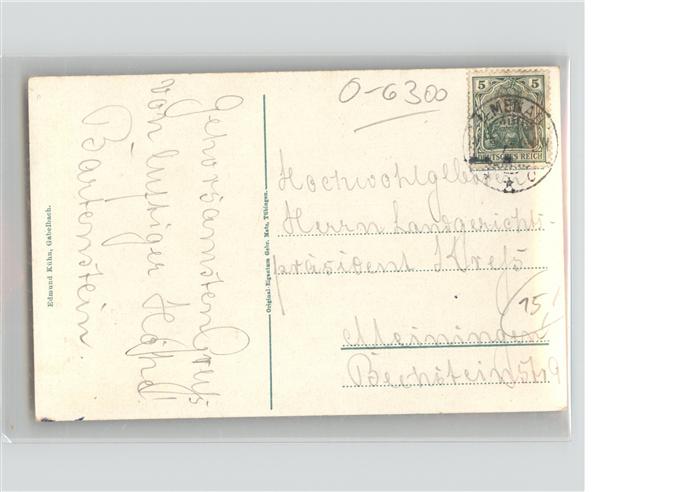 O-6300
5 5
ILMENAU
DEUTSCHES REICH
Gehorsamsten Gruß
von luftiger Höhe!
Bartenstein.
Edmund Kühn, Gabelbach.
Original-Eigentum Gebr. Metz, Tübingen.
Hochwohlgeboren
Herrn Landgerichts-
präsident Kreß
15,
Meiningen
Bechsteinstr 9